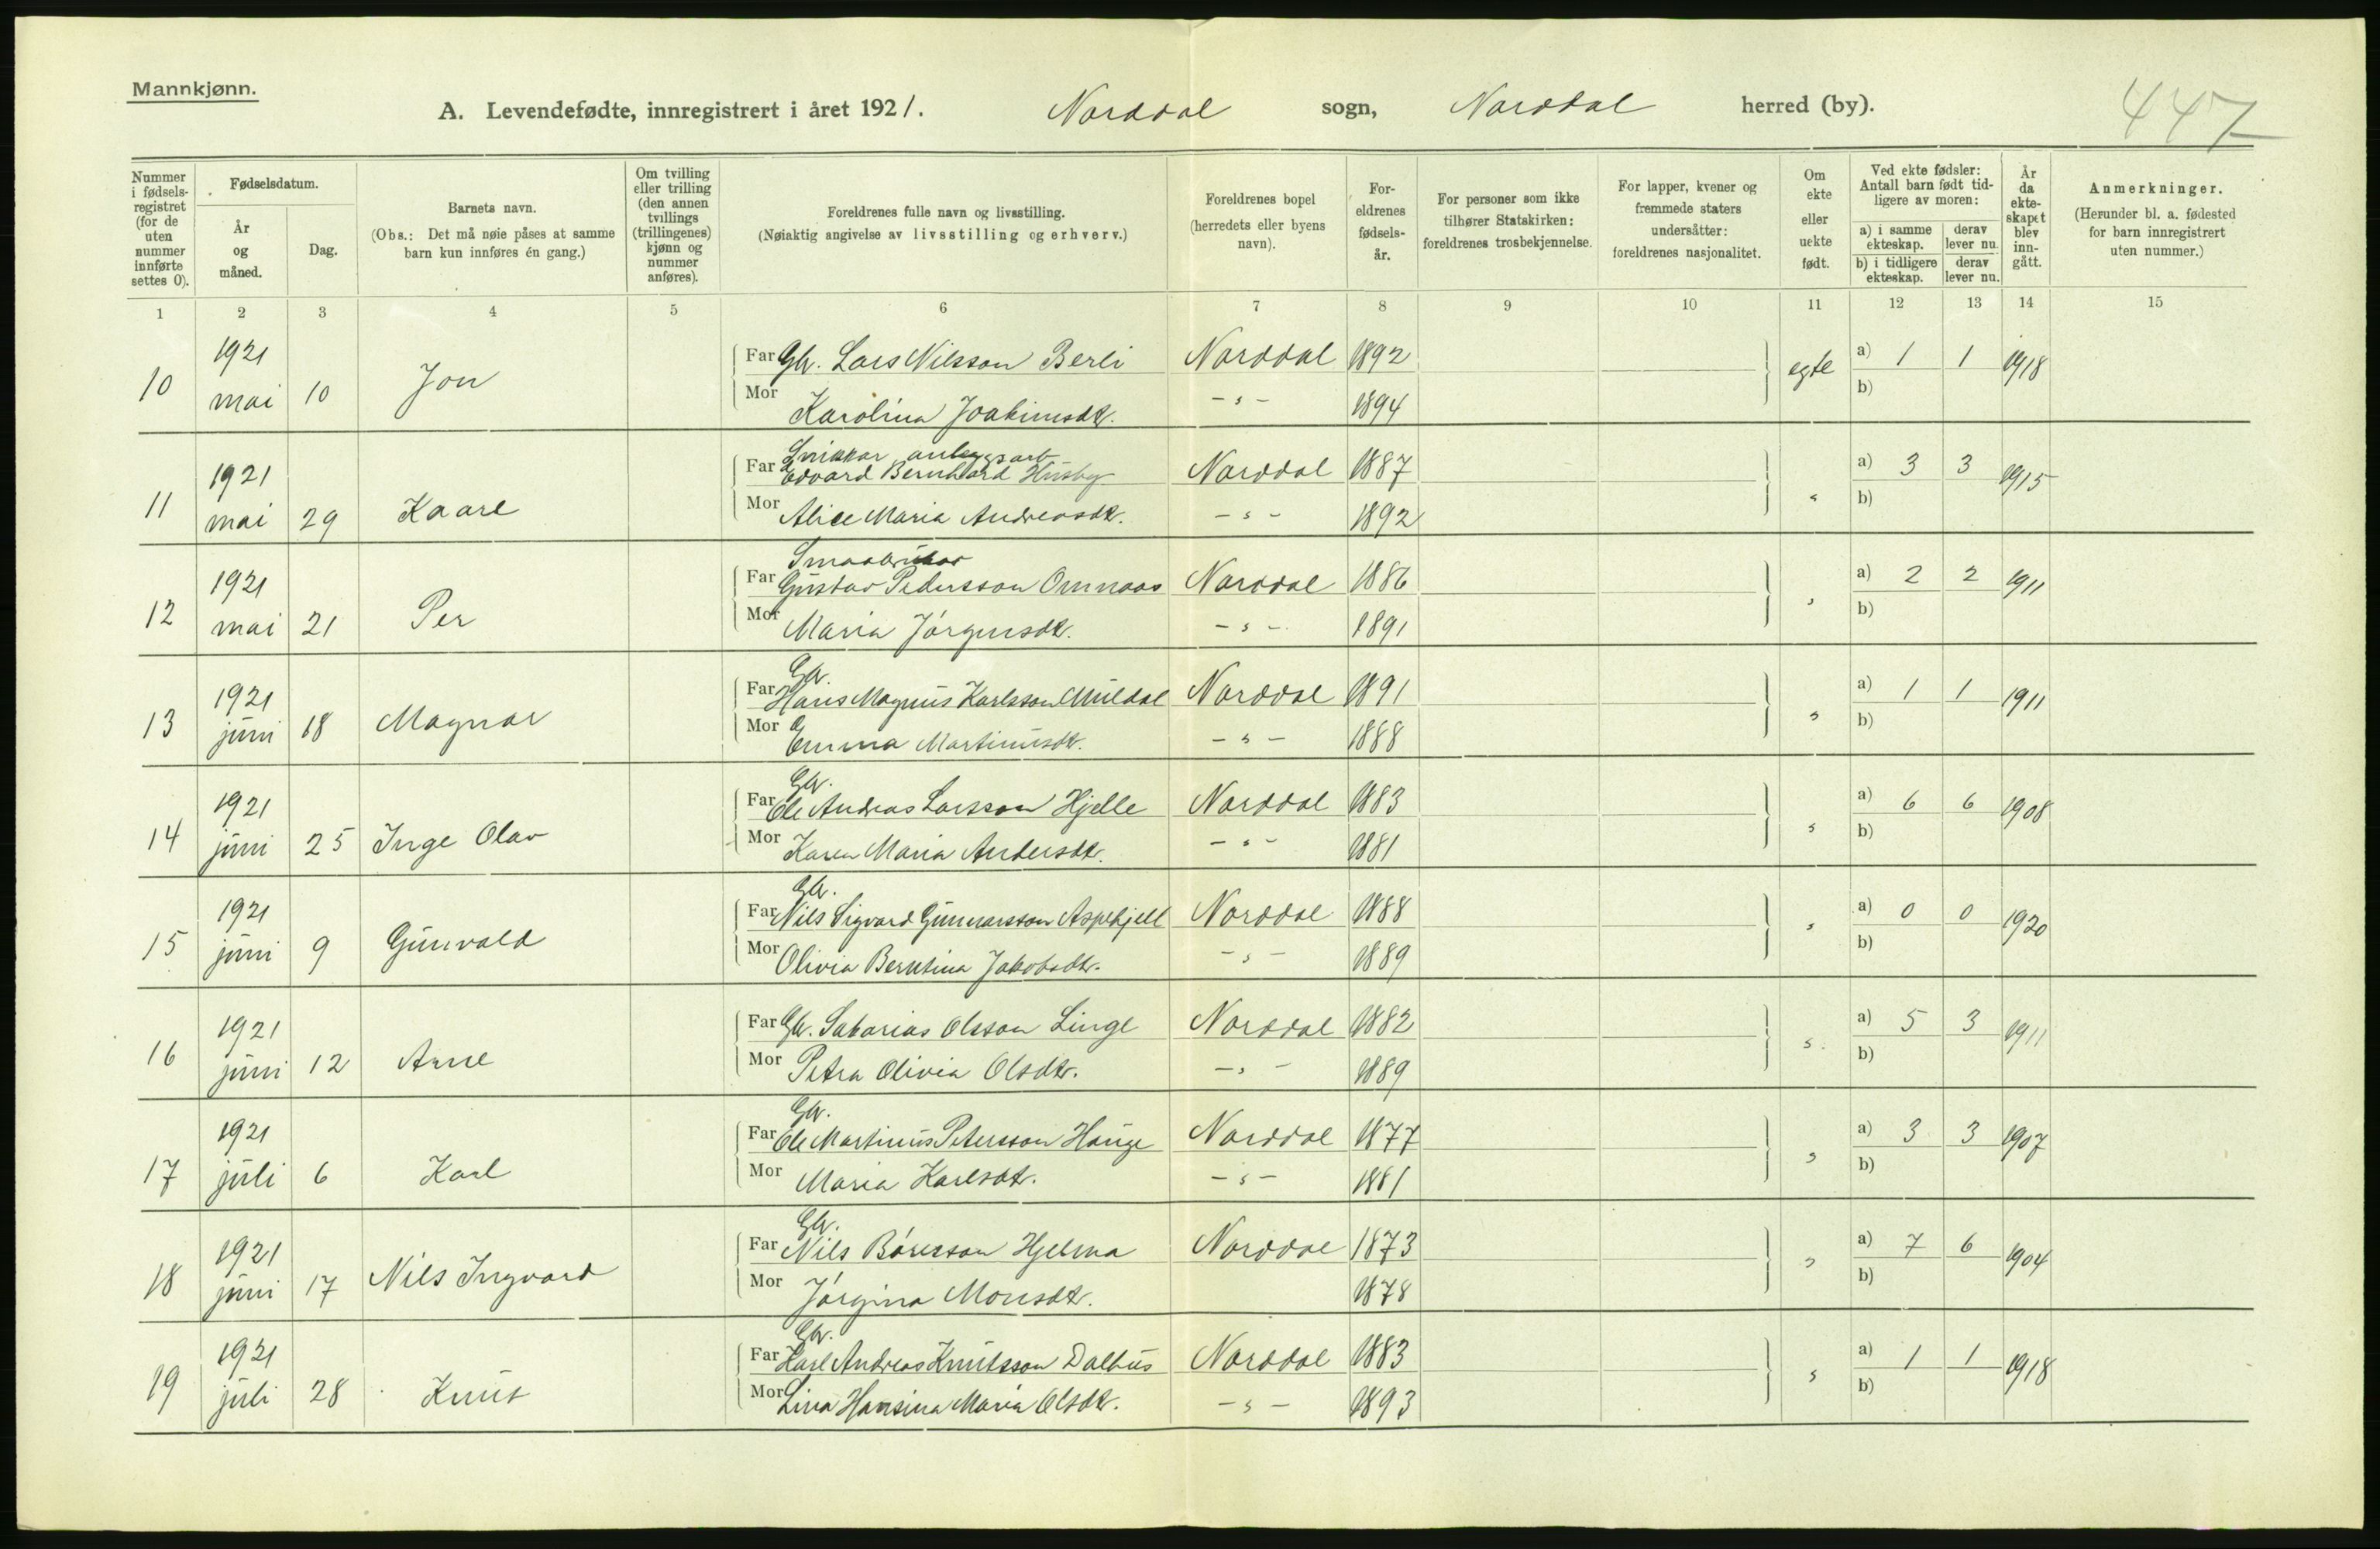 Mannkjønn.
A. Levendefødte, innregistrert i året 1921. Norddal sogn, Norddal herred (by). 447
Nummer i fødselsregistret (for de uten nummer innførte settes 0).
Fødselsdatum.
År og måned.
Dag.
Barnets navn.
(Obs.: Det må nøie påses at samme barn kun innføres én gang.)
Om tvilling eller trilling (den annen tvillings (trillingenes) kjønn og nummer anføres).
Foreldrenes fulle navn og livsstilling.
(Nøiaktig angivelse av livsstilling og erhverv.)
Foreldrenes bopel (herredets eller byens navn).
Foreldrenes fødselsår.
For personer som ikke tilhører Statskirken: foreldrenes trosbekjennelse.
For lapper, kvener og fremmede staters undersåtter: foreldrenes nasjonalitet.
Om ekte eller uekte født.
Ved ekte fødsler: Antall barn født tidligere av moren:
a) i samme ekteskap. derav lever nu.
b) i tidligere ekteskap. derav lever nu.
År da ekteskapet blev inngått.
Anmerkninger.
(Herunder bl. a. fødested for barn innregistrert uten nummer.)
1 2 3 4 5 6 7 8 9 10 11 12 13 14 15
10 1921 mai 10 Jon
Far Gbr. Lars Nilsson Berli Norddal 1892 egte a) 1 1 1918
Mor Karolina Joakimsdtr. - s - 1894 b)
11 1921 mai 29 Kaare
Snikkar, anleggsarb.
Far Edvard Bernhard Husby Norddal 1887 s a) 3 3 1915
Mor Alice Maria Andreasdtr. - s - 1892 b)
12 1921 mai 21 Per
Smaabrukar
Far Gustav Pedersson Omnaas Norddal 1886 s a) 2 2 1911
Mor Maria Jørgensdtr. - s - 1891 b)
13 1921 juni 18 Magnar
Gbr.
Far Hans Magnus Karlsson Muldal Norddal 1891 s a) 1 1 1911
Mor Emma Martinusdtr. - s - 1888 b)
14 1921 juni 25 Inge Olav
Gbr.
Far Ole Andreas Larsson Hjelle Norddal 1883 s a) 6 6 1908
Mor Karen Maria Andersdtr. - s - 1881 b)
15 1921 juni 9 Gunvald
Gbr.
Far Nils Sigvard Gunnarsson Aspehjell Norddal 1888 s a) 0 0 1920
Mor Olivia Berntina Jakobsdtr. - s - 1889 b)
16 1921 juni 12 Arne
Far Gbr. Sakarias Olsson Linge Norddal 1882 s. a) 5 3 1911
Mor Petra Olivia Olsdtr. - s - 1889 b)
17 1921 juli 6 Karl
Gbr.
Far Ole Martinus Petersson Hauge Norddal 1877 s a) 3 3 1907
Mor Maria Karlsdtr. - s - 1881 b)
18 1921 juni 17 Nils Ingvard
Gbr.
Far Nils Båresson Hjelma Norddal 1873 s a) 7 6 1904
Mor Jørgina Monsdtr. 1878 b)
19 1921 juli 28 Knut
Gbr.
Far Karl Andreas Knutsson Dalhus Norddal 1883 s a) 1 1 1918
Mor Lina Hansina Maria Olsdtr. - s - 1893 b)